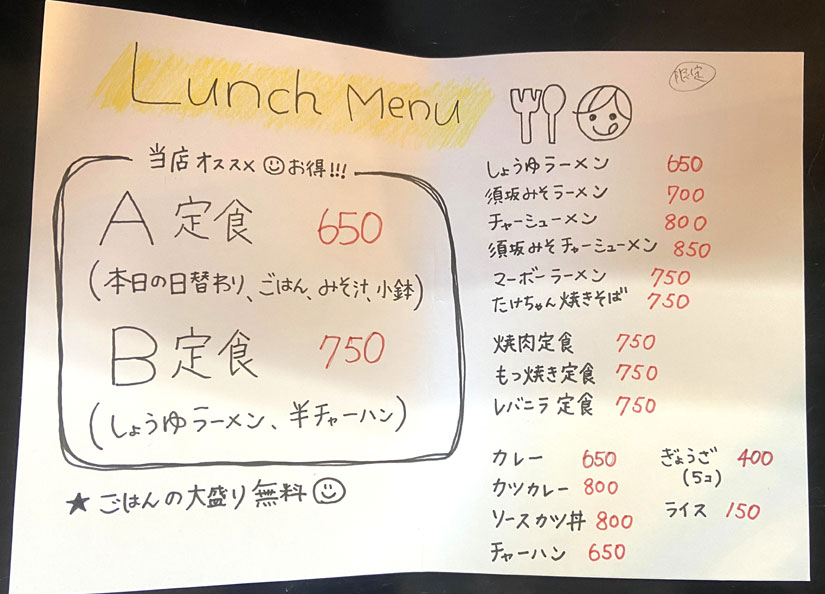 Lunch Menu
当店オススメ お得!!!
A 定食 650
(本日の日替わり、ごはん、みそ汁、小鉢)
B 定食 750
(しょうゆラーメン、半チャーハン)
★ ごはんの大盛り無料
限定
しょうゆラーメン 650
須坂みそラーメン 700
チャーシューメン 800
須坂みそチャーシューメン 850
マーボーラーメン 750
たけちゃん焼きそば 750
焼肉定食 750
もつ焼き定食 750
レバニラ定食 750
カレー 650
カツカレー 800
ソースカツ丼 800
チャーハン 650
ぎょうざ 400
(5コ)
ライス 150